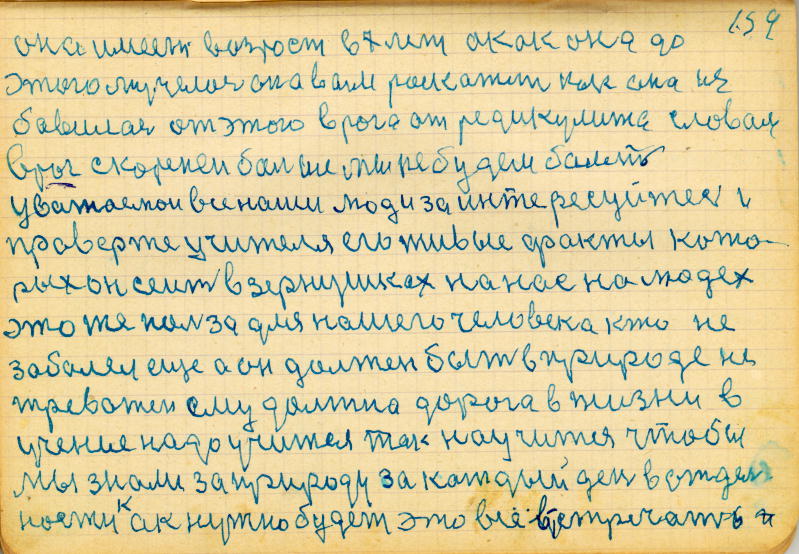 159
она имеет возрост в 7 лет а как она до
этого мучелая она вам роскажит как она из
бавилая от этого врога от редикулита словая
врог скоренен болше мы не будем балеть
уважаемои все наши люди заинтересуйтес и
проверте учителя его живые факты кото
рых он сеит в зернушках на нас на людех
это же полза для нашего человека кто не
заболел еще а он должен быт в природе не
тревожен ему должна дорога в жизни в
учение надо учится так научится чтобы
мы знали за природу за каждый ден
ности как нужно будет это все встречать и